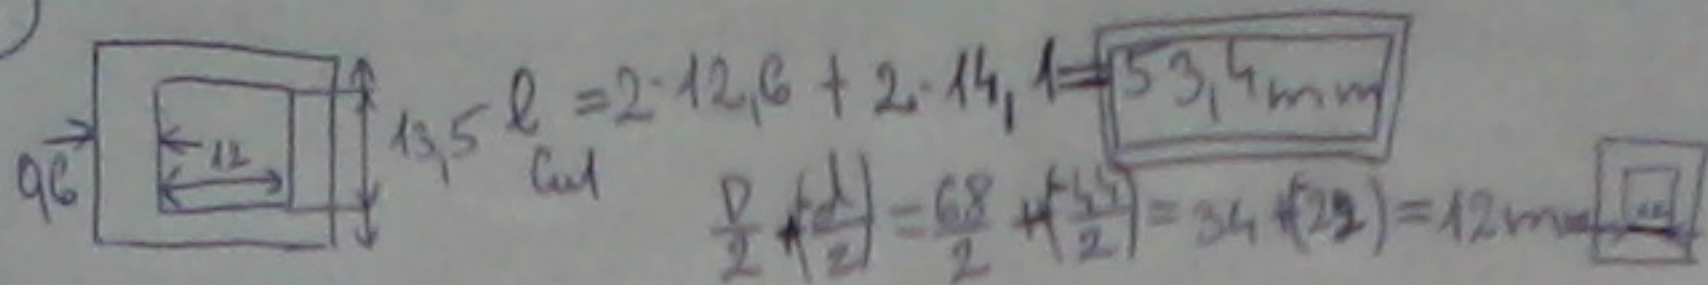 0,6 12 13,5 l Cu1 = 2·12,6 + 2·14,1 = 53,4mm
D/2 + (-d/2) = 68/2 + (-44/2) = 34 + (-22) = 12mm